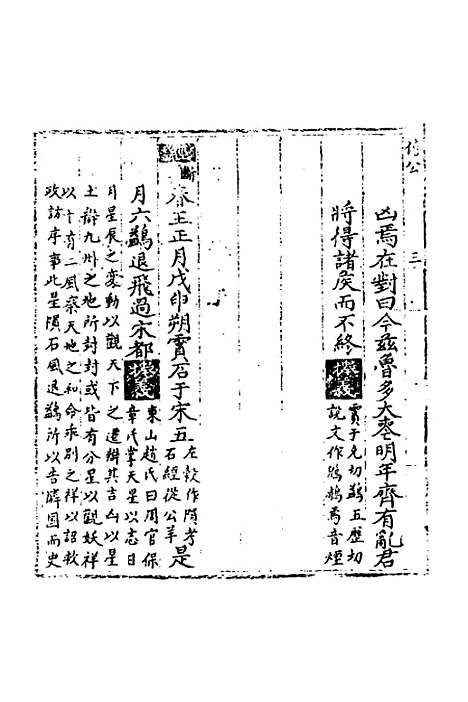 僖公
三
凶焉在對曰今茲魯多大喪明年齊有亂君
將得諸侯而不終
撮義
賈于先切鷁五歷切
說文作鶂鶂焉音煙
斷
春王正月戊申朔賈石于宋五
左穀作隕考
石經從公羊
是
月六鷁退飛過宋都
撮義
東山趙氏曰周官保
章氏掌天星以志日
月星辰之變動以觀天下之遷辯其吉凶以星
土辯九州之地所封封或皆有分星以觀妖祥
以十有二風察天地之和命乖別之祥以詔救
政訪序事此星隕石風退鷁所以告隣國而史